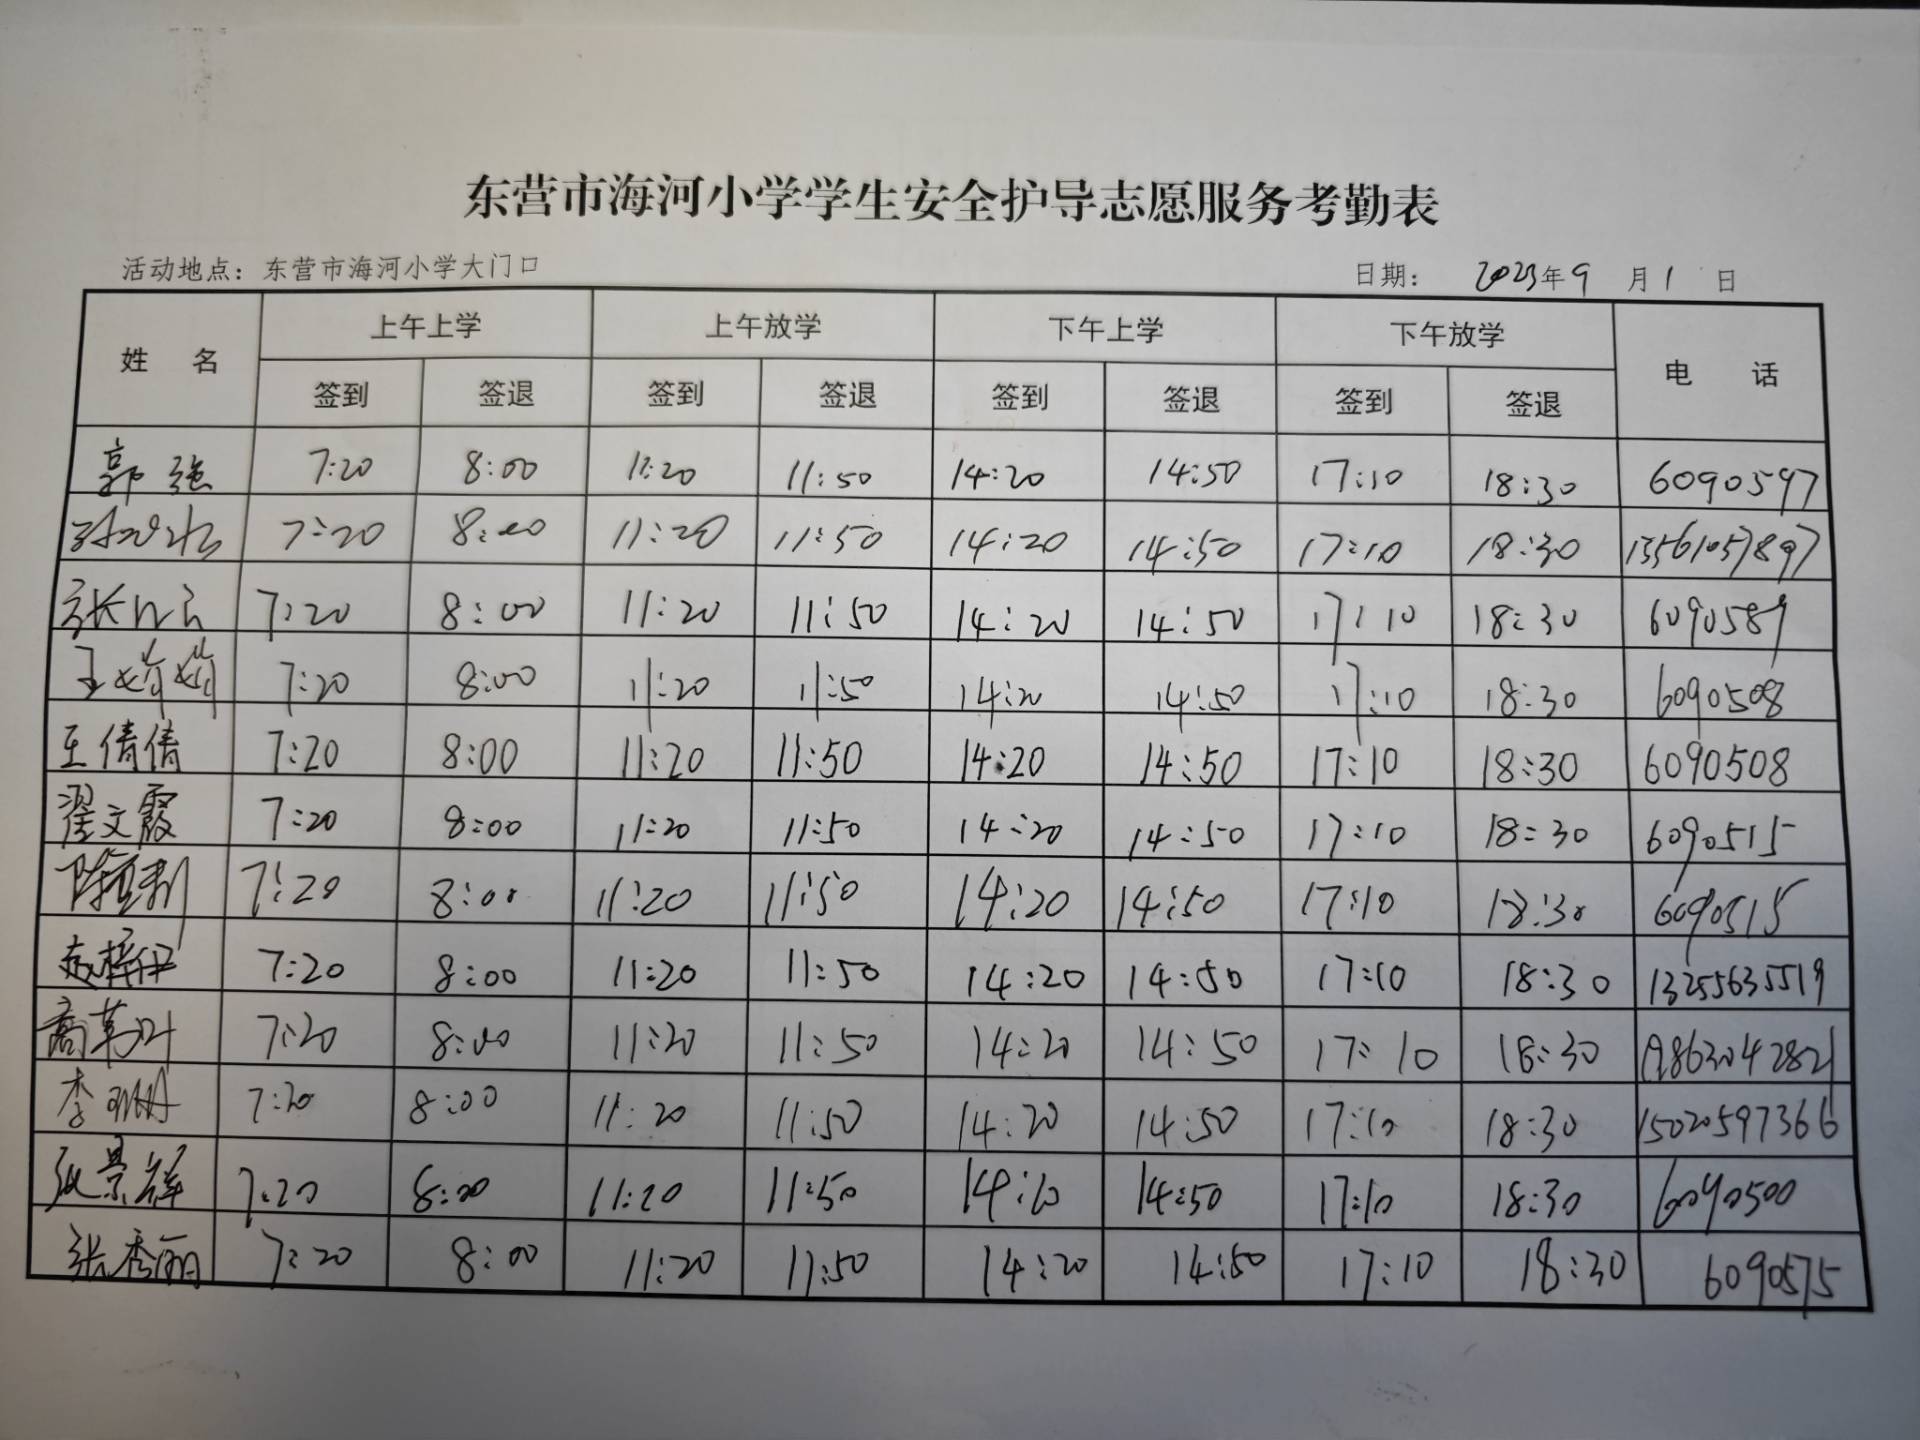 东营市海河小学学生安全护导志愿服务考勤表
活动地点：东营市海河小学大门口 日期： 2023年9月1日
姓 名 上午上学 上午放学 下午上学 下午放学 电 话
签到 签退 签到 签退 签到 签退 签到 签退
郭强 7:20 8:00 11:20 11:50 14:20 14:50 17:10 18:30 6090597
7:20 8:00 11:20 11:50 14:20 14:50 17:10 18:30 13561057897
张 7:20 8:00 11:20 11:50 14:20 14:50 17:10 18:30 6090589
王 7:20 8:00 11:20 11:50 14:20 14:50 17:10 18:30 6090508
王倩倩 7:20 8:00 11:20 11:50 14:20 14:50 17:10 18:30 6090508
翟文霞 7:20 8:00 11:20 11:50 14:20 14:50 17:10 18:30 6090515
陈 7:20 8:00 11:20 11:50 14:20 14:50 17:10 18:30 6090515
7:20 8:00 11:20 11:50 14:20 14:50 17:10 18:30 13255635519
7:20 8:00 11:20 11:50 14:20 14:50 17:10 18:30 19863042821
李 7:20 8:00 11:20 11:50 14:20 14:50 17:10 18:30 15020597366
张景祥 7:20 8:00 11:20 11:50 14:20 14:50 17:10 18:30 6090500
张秀丽 7:20 8:00 11:20 11:50 14:20 14:50 17:10 18:30 6090575